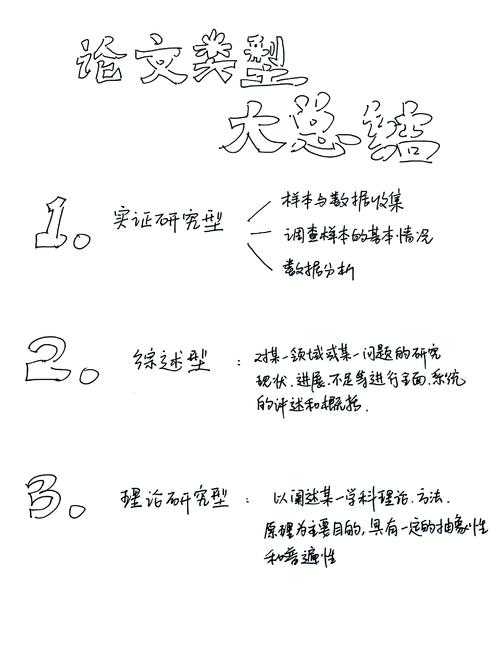 论文类型
大总结
1。 实证研究型
样本与数据收集
调查样本的基本情况
数据分析
2。 综述型 : 对某一领域或某一问题的研究
现状、进展、不足等进行全面、系统
的评述和概括.
3。 理论研究型 : 以阐述某一学科理论、方法、
原理为主要目的,具有一定的抽象性
和普遍性